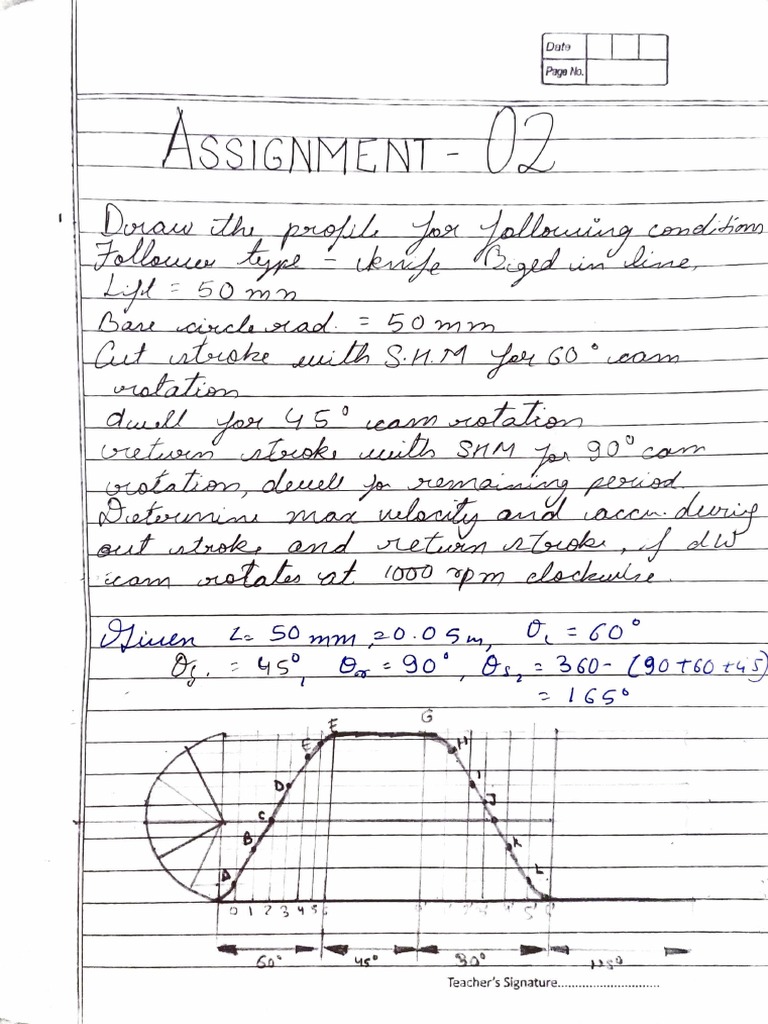 Date
Page No.
ASSIGNMENT - 02
Draw the profile for following conditions
Follower type - knife Edged in line,
Lift = 50 mm
Base circle rad. = 50 mm
Out stroke with S.H.M for 60° cam
rotation
dwell for 45° cam rotation
return stroke with SHM for 90° cam
rotation, dwell for remaining period.
Determine max velocity and accn. during
out stroke and return stroke, if
cam rotates at 1000 rpm clockwise.
Given L= 50 mm, = 0.05 m, θ = 60°
θ = 45°, θ = 90°, θs₂ = 360 - (90+60+45)
= 165°
F G
E H
D I
C J
B K
A L
0 1 2 3 4 5 6
60° 45°
Teacher's Signature..............................